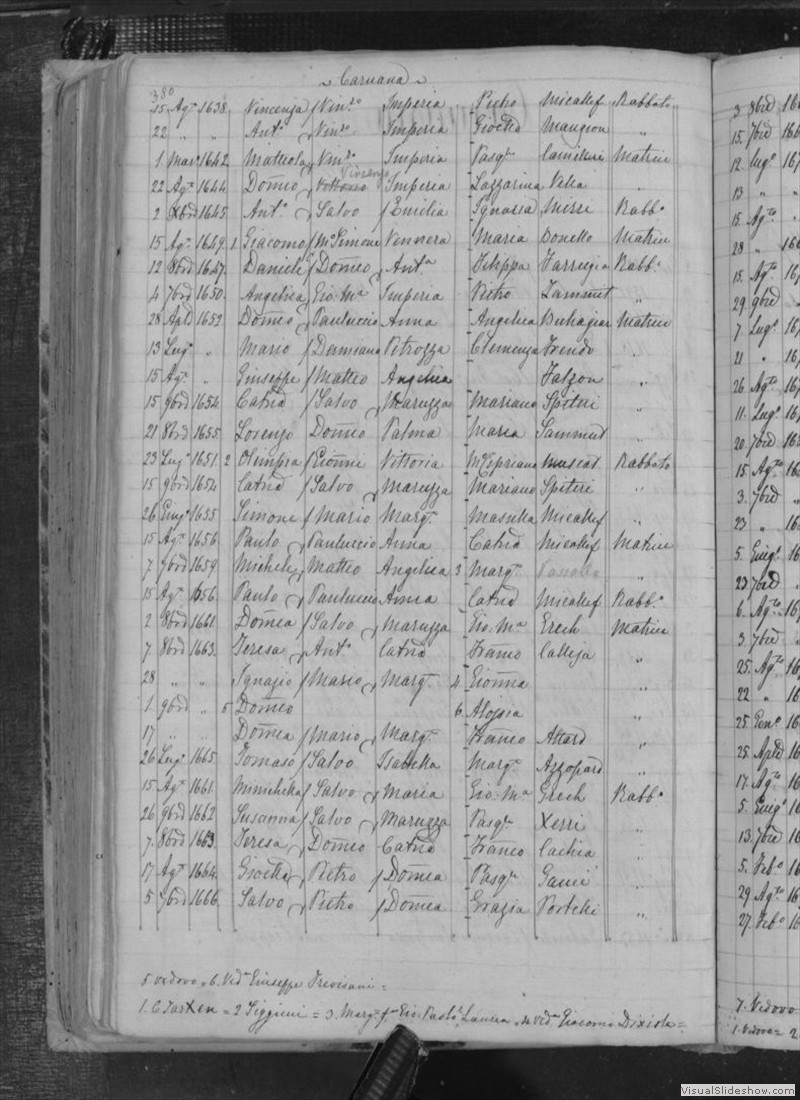 380
~ Caruana ~
15 Agto 1638. Vincenza / Vinzo Imperia Pietro Micallef Rabbato
22 " " Anto / Vinzo Imperia Mangion "
1. Mar 1642. Matteola Vinzo Imperia Pasqe Camilleri Matrice
Vincenzo
22 Agto 1644. Domeo Imperia Lazzarina Vella "
2 Xbre 1645. Anto / Salvo / Emilia Ignazia Mizzi Rabbo
15 Agto 1649. 1 Giacomo / Mo Simone Vennera Maria Bonello Matrice
12 8bre 1647. Daniele / Domeo Anta Filippa Farrugia Rabbo
4 7bre 1650. Angelica Gio. Ma Imperia Pietro Zammut "
28 Aple 1652. Domeo Pauluccio Anna Angelica Buhagiar Matrice
13 Lugo " Mario / Damiano Petrozza Clemenza Frendo "
15 Agto " Giuseppe / Matteo Angelica Falzon "
15 9bre 1654. Catna / Salvo Maruzza Mariano Spiteri "
21 8bre 1655. Lorenzo Domeo Palma Maria Sammut "
23 Lugo 1651. 2 Olimpia / Gionni Vittoria Mo Cipriano Muscat Rabbato
15 9bre 1654 Catna / Salvo Maruzza Mariano Spiteri "
26 1655 Simone / Mario Marga Micallef "
15 Agto 1656 Paulo Pauluccio Anna Catna Micallef Matrice
7 9bre 1659 Michele Matteo Angelica 3 Marga "
15 Agto 1656. Paulo Pauluccio Anna Catna Micallef Rabbo
2 8bre 1661. Domea / Salvo Maruzza Gio. Ma Grech Matrice
7 8bre 1663. Teresa Anto Catna Franco Calleja "
28 " " Ignazio / Mario Marga 4. Gionna "
1. 9bre " 5 Domeo 6. Aloysia "
17 " " Domea / Mario Marga Franco Attard "
26 Lugo 1665. Tomaso / Salvo Isabella Marga Azzopard "
15 Agto 1661. Minichella / Salvo Maria Gio. Ma Grech Rabbo
26 9bre 1662 Susanna / Salvo Maruzza Pasqe Xerri "
7. 8bre 1663. Teresa Domeo Catna Franco Cachia "
17 Agto 1664. Pietro / Domea Pasqe Gauci "
5 7bre 1666. Salvo Pietro / Domea Grazia Portelli "
5 vedovo = 6. Veda Giuseppe Trevisani =
1. C. Tarxen = 2 Siggieui = 3. Marga Gio. Paolo Laurea = 4 Veda Giacomo
3 8bre
15. 7bre
12. Lugo
13 "
15. Agto
28 "
15. Agto
29. 9bre
7 Lugo
21 "
26 Agto
11. Lugo
20. 7bre
15 Agto
3. 7bre
23 "
5.
23 7bre
6. Agto
3. 7bre
25. Agto
22 "
25. Geno
25 Aple
17. Agto
5.
13. 7bre
5. Febo
29. Agto
27. Febo
7. Vedovo
1. Vedova = 2
VisualSlideshow.com